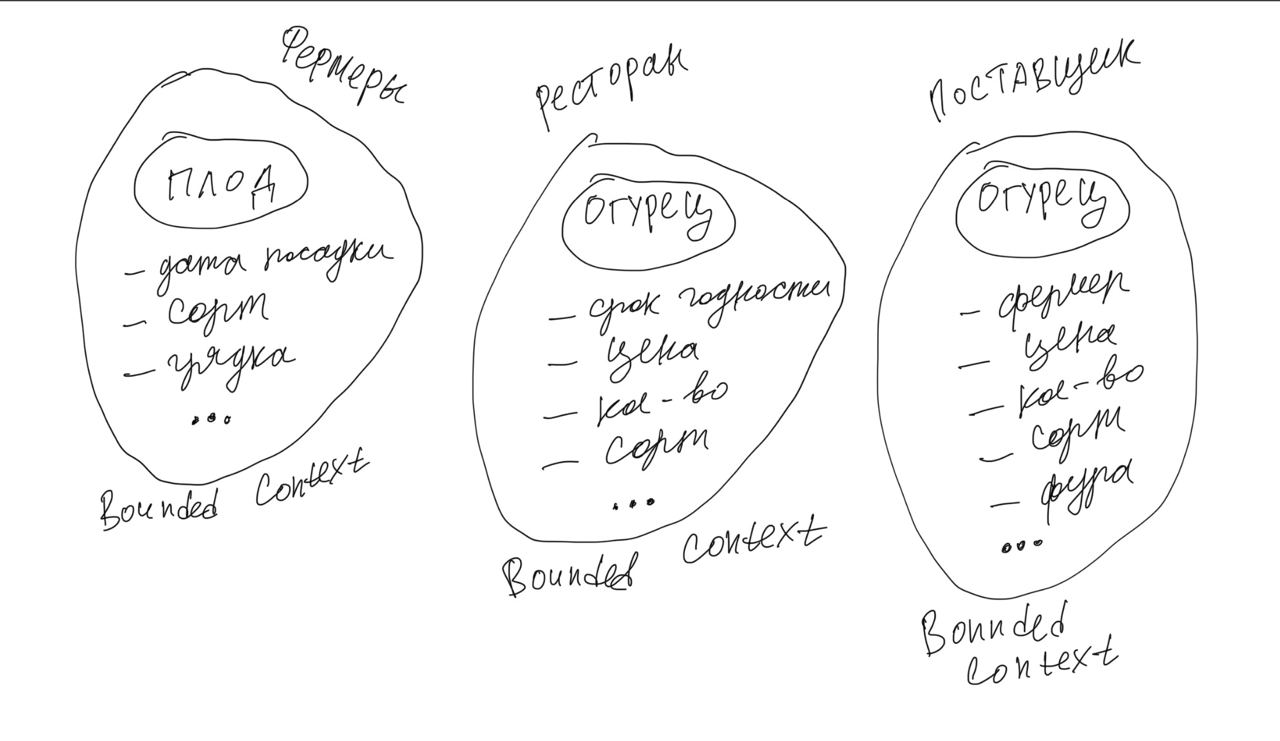 Фермеры
ПЛОД
– дата посадки
– сорт
– грядка
...
Bounded Context
РЕСТОРАН
ОГУРЕЦ
– срок годности
– цена
– кол-во
– сорт
...
Bounded Context
ПОСТАВЩИК
ОГУРЕЦ
– фермер
– цена
– кол-во
– сорт
– фура
...
Bounded
Context